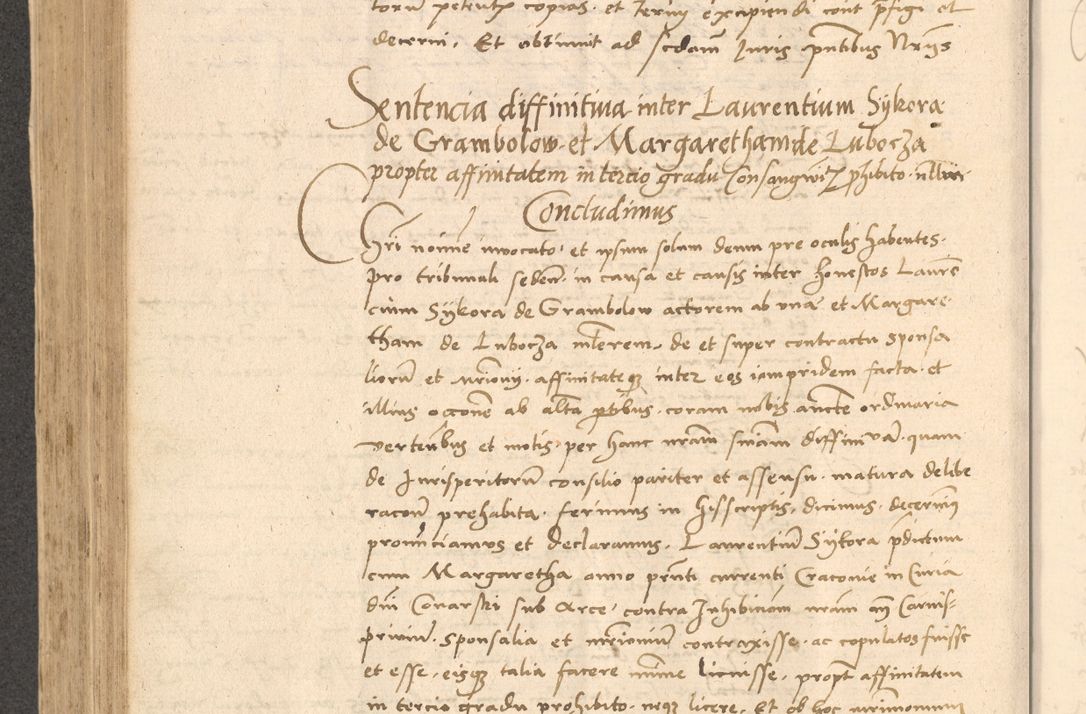 torum petentes copias et termin excipiendi cont prefigi et
decerni, Et obtinuit ad scdam Juris pntibus Nrijs
Sentencia diffinitiua inter Laurentium Sÿkora
de Grambolow et Margaretham de Lubocza
propter affinitatem in tercio gradu Consangwi prohibito
Concludimus
Chri noine inuocato et ipsum solum deum pre oculis habentes
pro tribunali seden in causa et causis inter honestos Lauren
cium Sÿkora de Grambolow actorem ab vna et Margare
tham de Lubocza de et super contractu sponsa
liorum et affinitateque inter eos iampridem facta et
illius occone ab alta ptibus coram nobis aucte ordinaria
vertentibus et motis per hanc nram sniam diffinitiua quam
de Jurisperitorum consilio pariter et assensu matura delibe
racone prehabita ferimus in hisscriptis, dicimus, decernimus
pronunciamus et declaramus, Laurentium Sÿkora pdictum
cum Margaretha anno prnti currenti Cracouie in Curia
dni Conarski sub Arce, contra Inhibiciom nram an Carnis-
priuium sponsalia et mrimonium contraxisse ac copulatos fuisse
et esse, eisque talia facere mime licuisse, propt affinitatem
in tercio gradu prohibito neque licere, Et ob hoc mrimonium